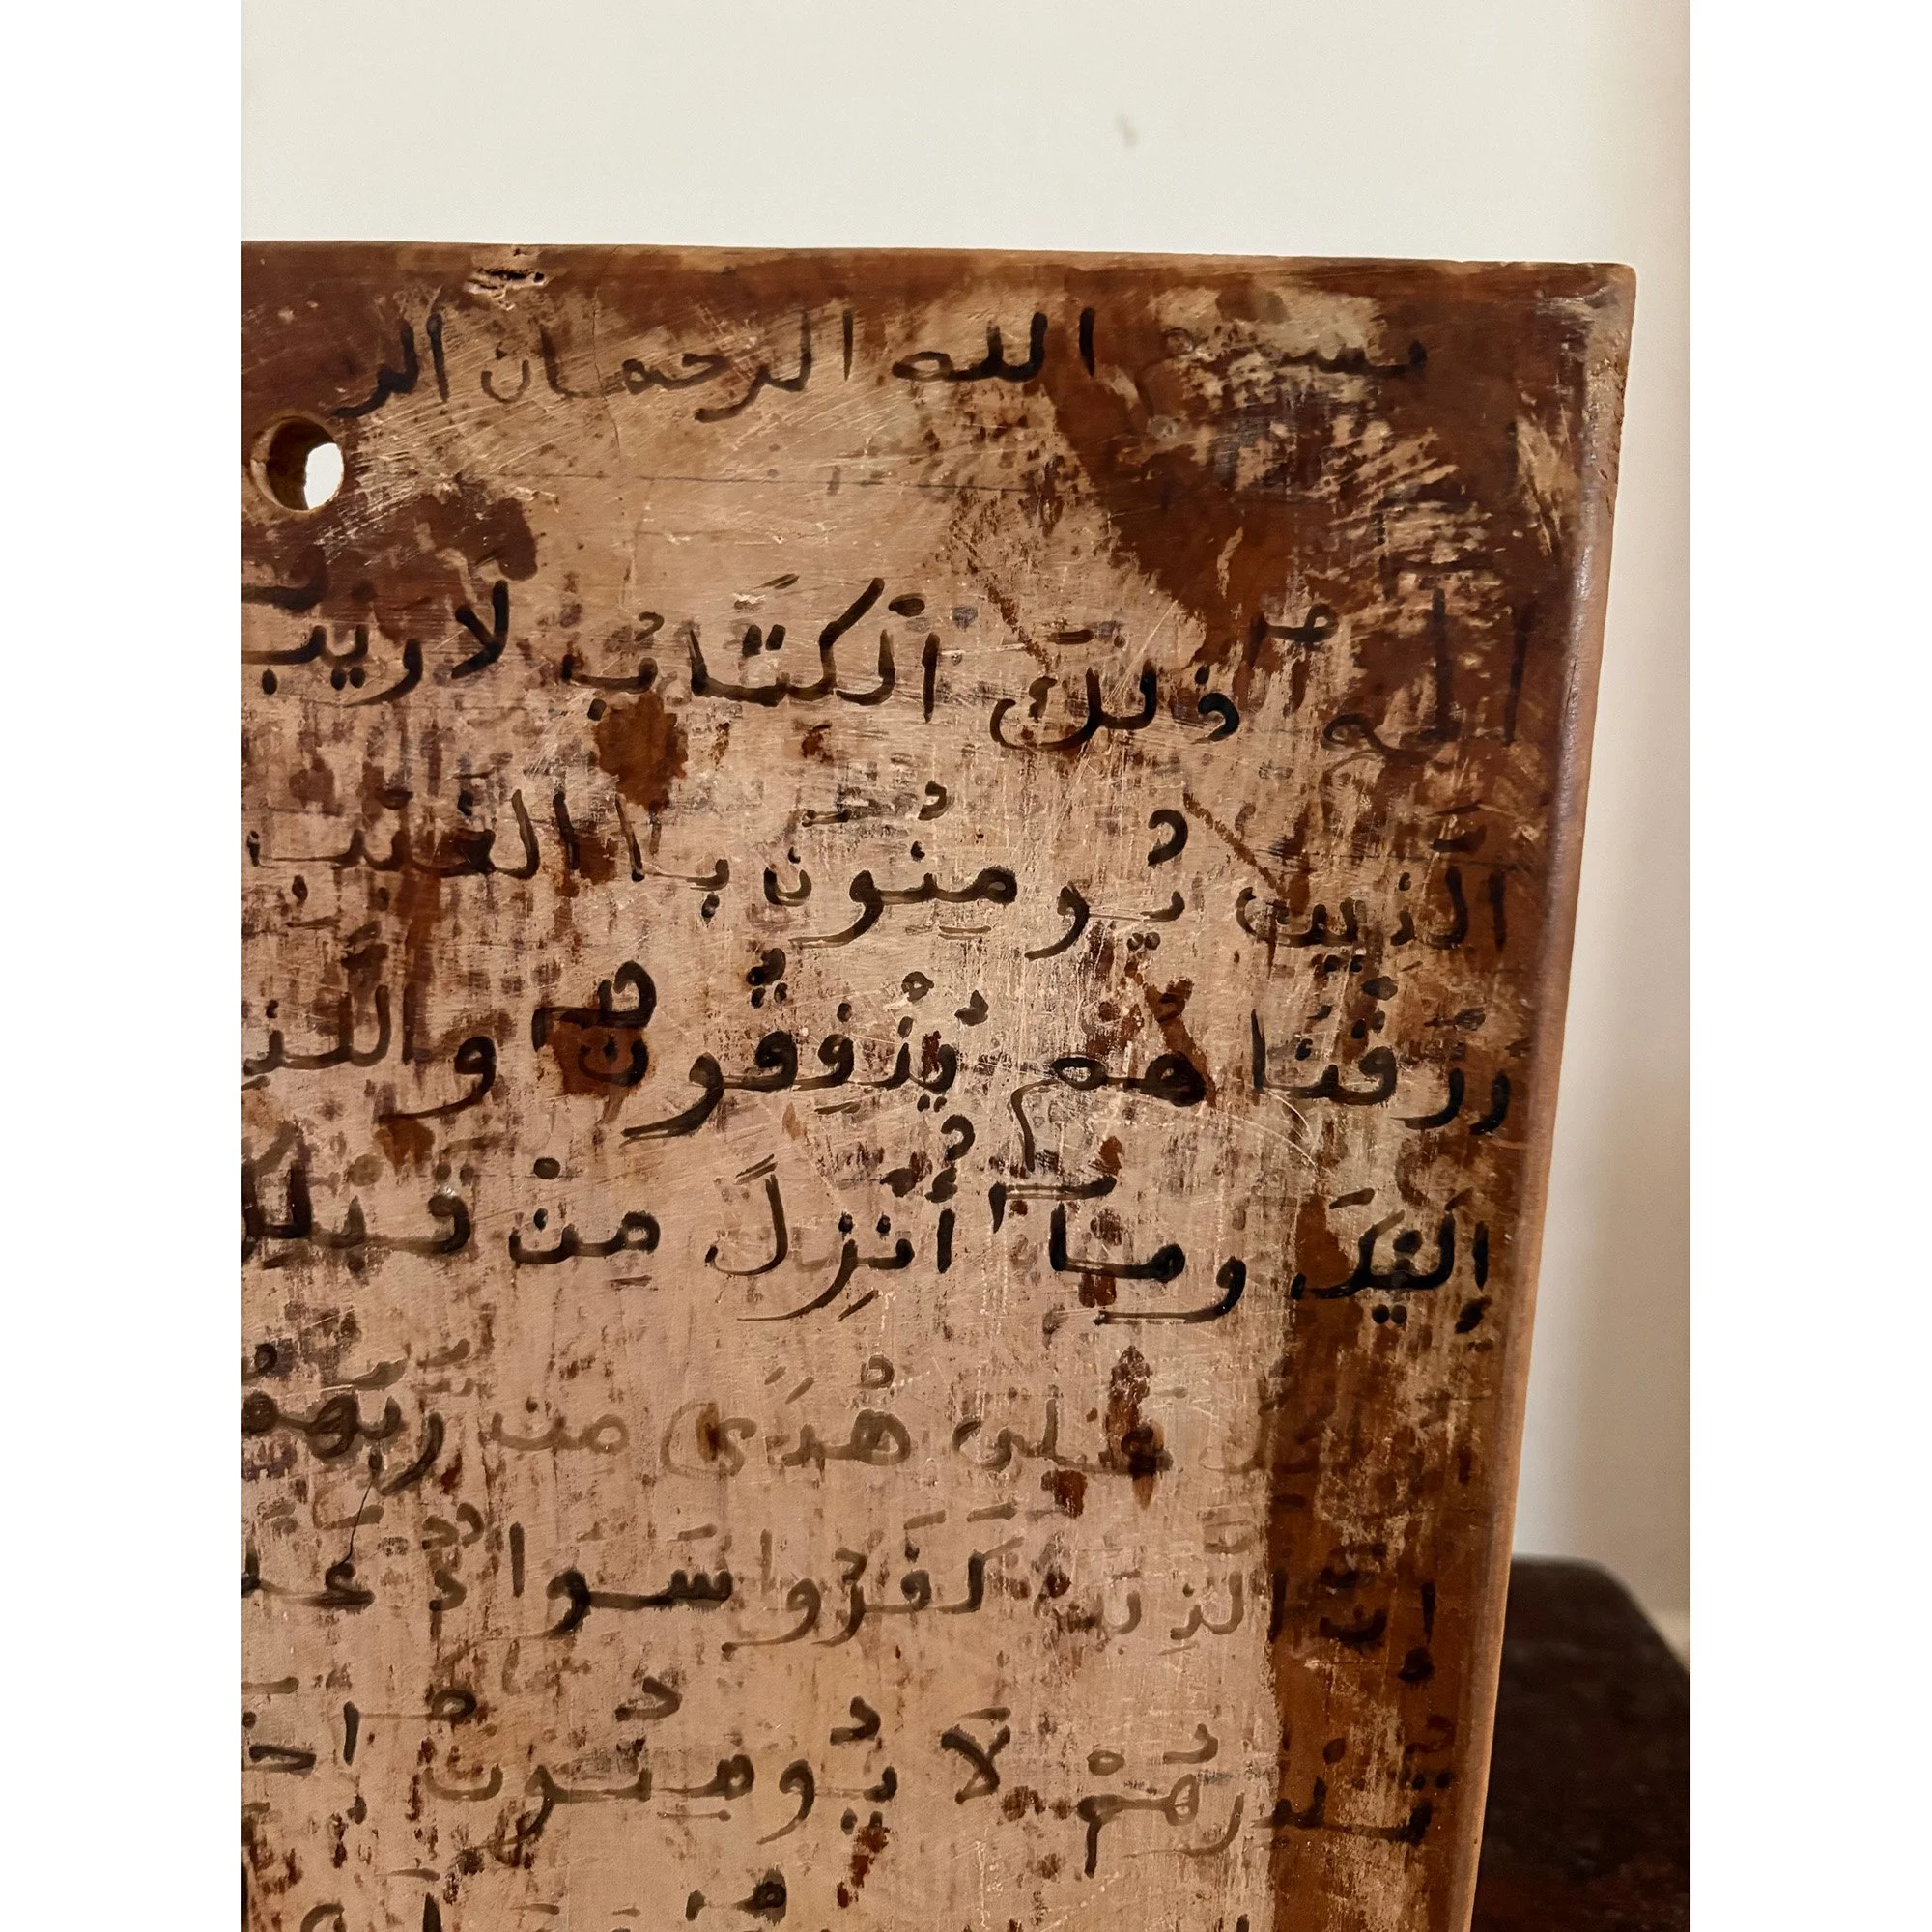 بسم الله الرحمان الر
الم ذَلِكَ اَلْكِتَابُ لَا رَيْبَ
اَلَّذِينَ يُومِنُونَ بِا الْغَيْبِ
رَزَقْنَا هُمْ يُنْفِقُونَ وَالَّذِ
إِلَيْكَ وَمَا أُنْزِلَ مِنْ قَبْلِكَ
عَلَى هُدًى مِن رَبِّهِمْ
إن الَّذِينَ كَفَرُوا سَوَاءٌ عَلَ
تُنذِرْهُمْ لَا يُومِنُونَ